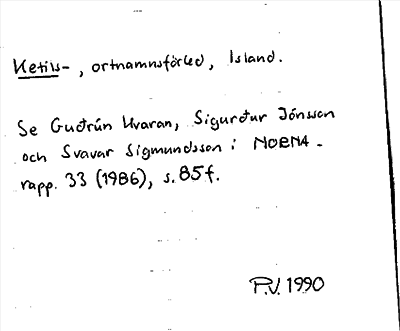 Ketils-, ortnamnsförled, Island.
Se Guðrún Kvaran, Sigurður Jónsson
och Svavar Sigmundsson i NORNA-
rapp. 33 (1986), s. 85 f.
P.V. 1990